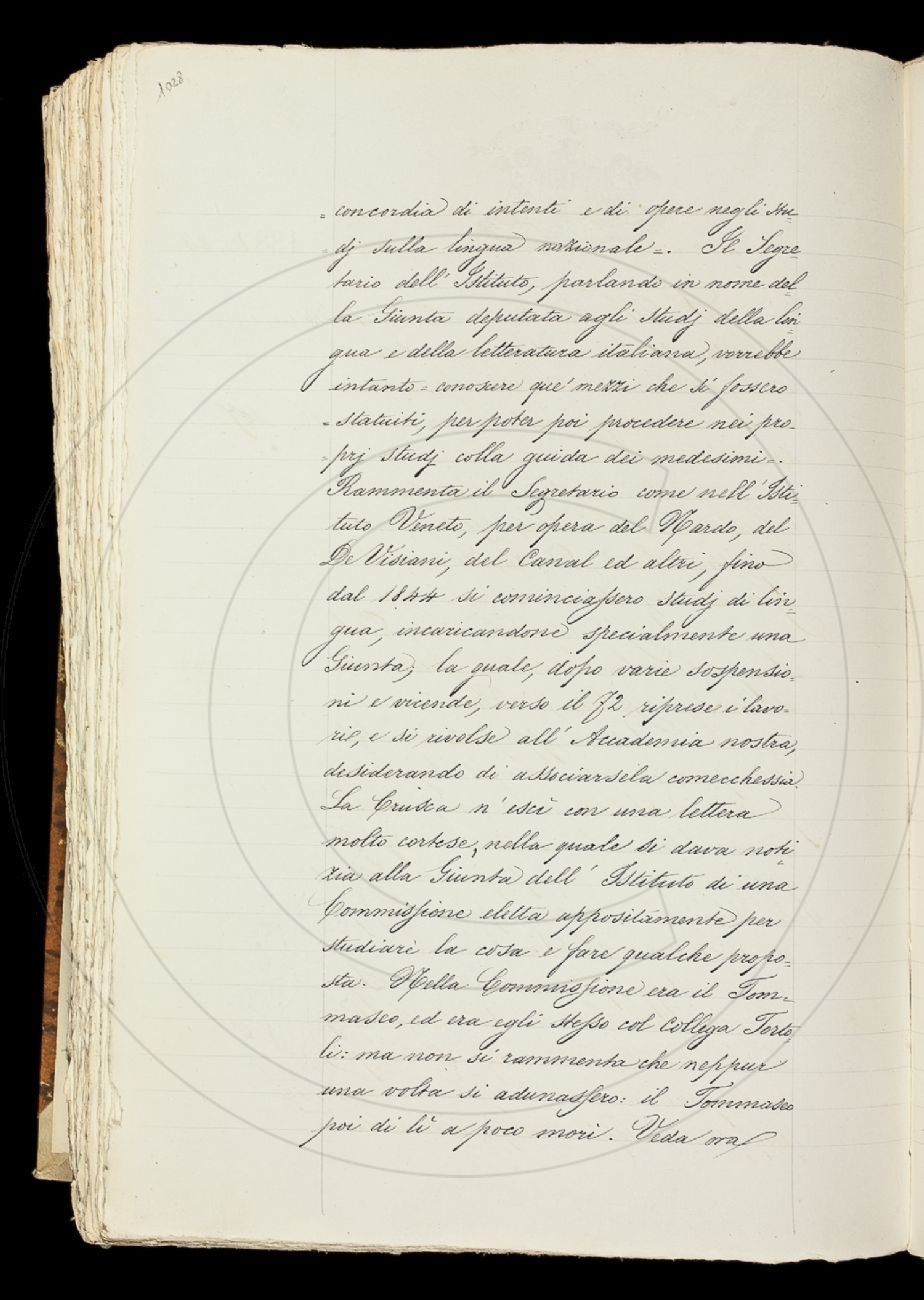 1028
= concordia di intenti e di opere negli stu-
= dj sulla lingua nazionale =. Il Segre
tario dell' Istituto, parlando in nome del-
la Giunta deputata agli studj della lin-
gua e della letteratura italiana, vorrebbe
intanto = conoscere que' mezzi che si fossero
= statuiti, per poter poi procedere nei pro-
= prj studj colla guida dei medesimi =.
Rammenta il Segretario come nell' Isti-
tuto Veneto, per opera del Nardo, del
De Visiani, del Canal ed altri, fino
dal 1844 si cominciassero studj di lin-
gua, incaricandone specialmente una
Giunta; la quale, dopo varie sospensio-
ni e vicende, verso il 72 riprese i lavo-
ri, e si rivolse all' Accademia nostra,
desiderando di associarsela comecchessia.
La Crusca n' escì con una lettera
molto cortese, nella quale si dava noti-
zia alla Giunta dell' Istituto di una
Commissione eletta appositamente per
studiare la cosa e fare qualche propo-
sta. Nella Commissione era il Tom-
maseo, ed era egli stesso col Collega Torto-
li: ma non si rammenta che neppur
una volta si adunassero: il Tommaseo
poi di lì a poco morì. Veda ora